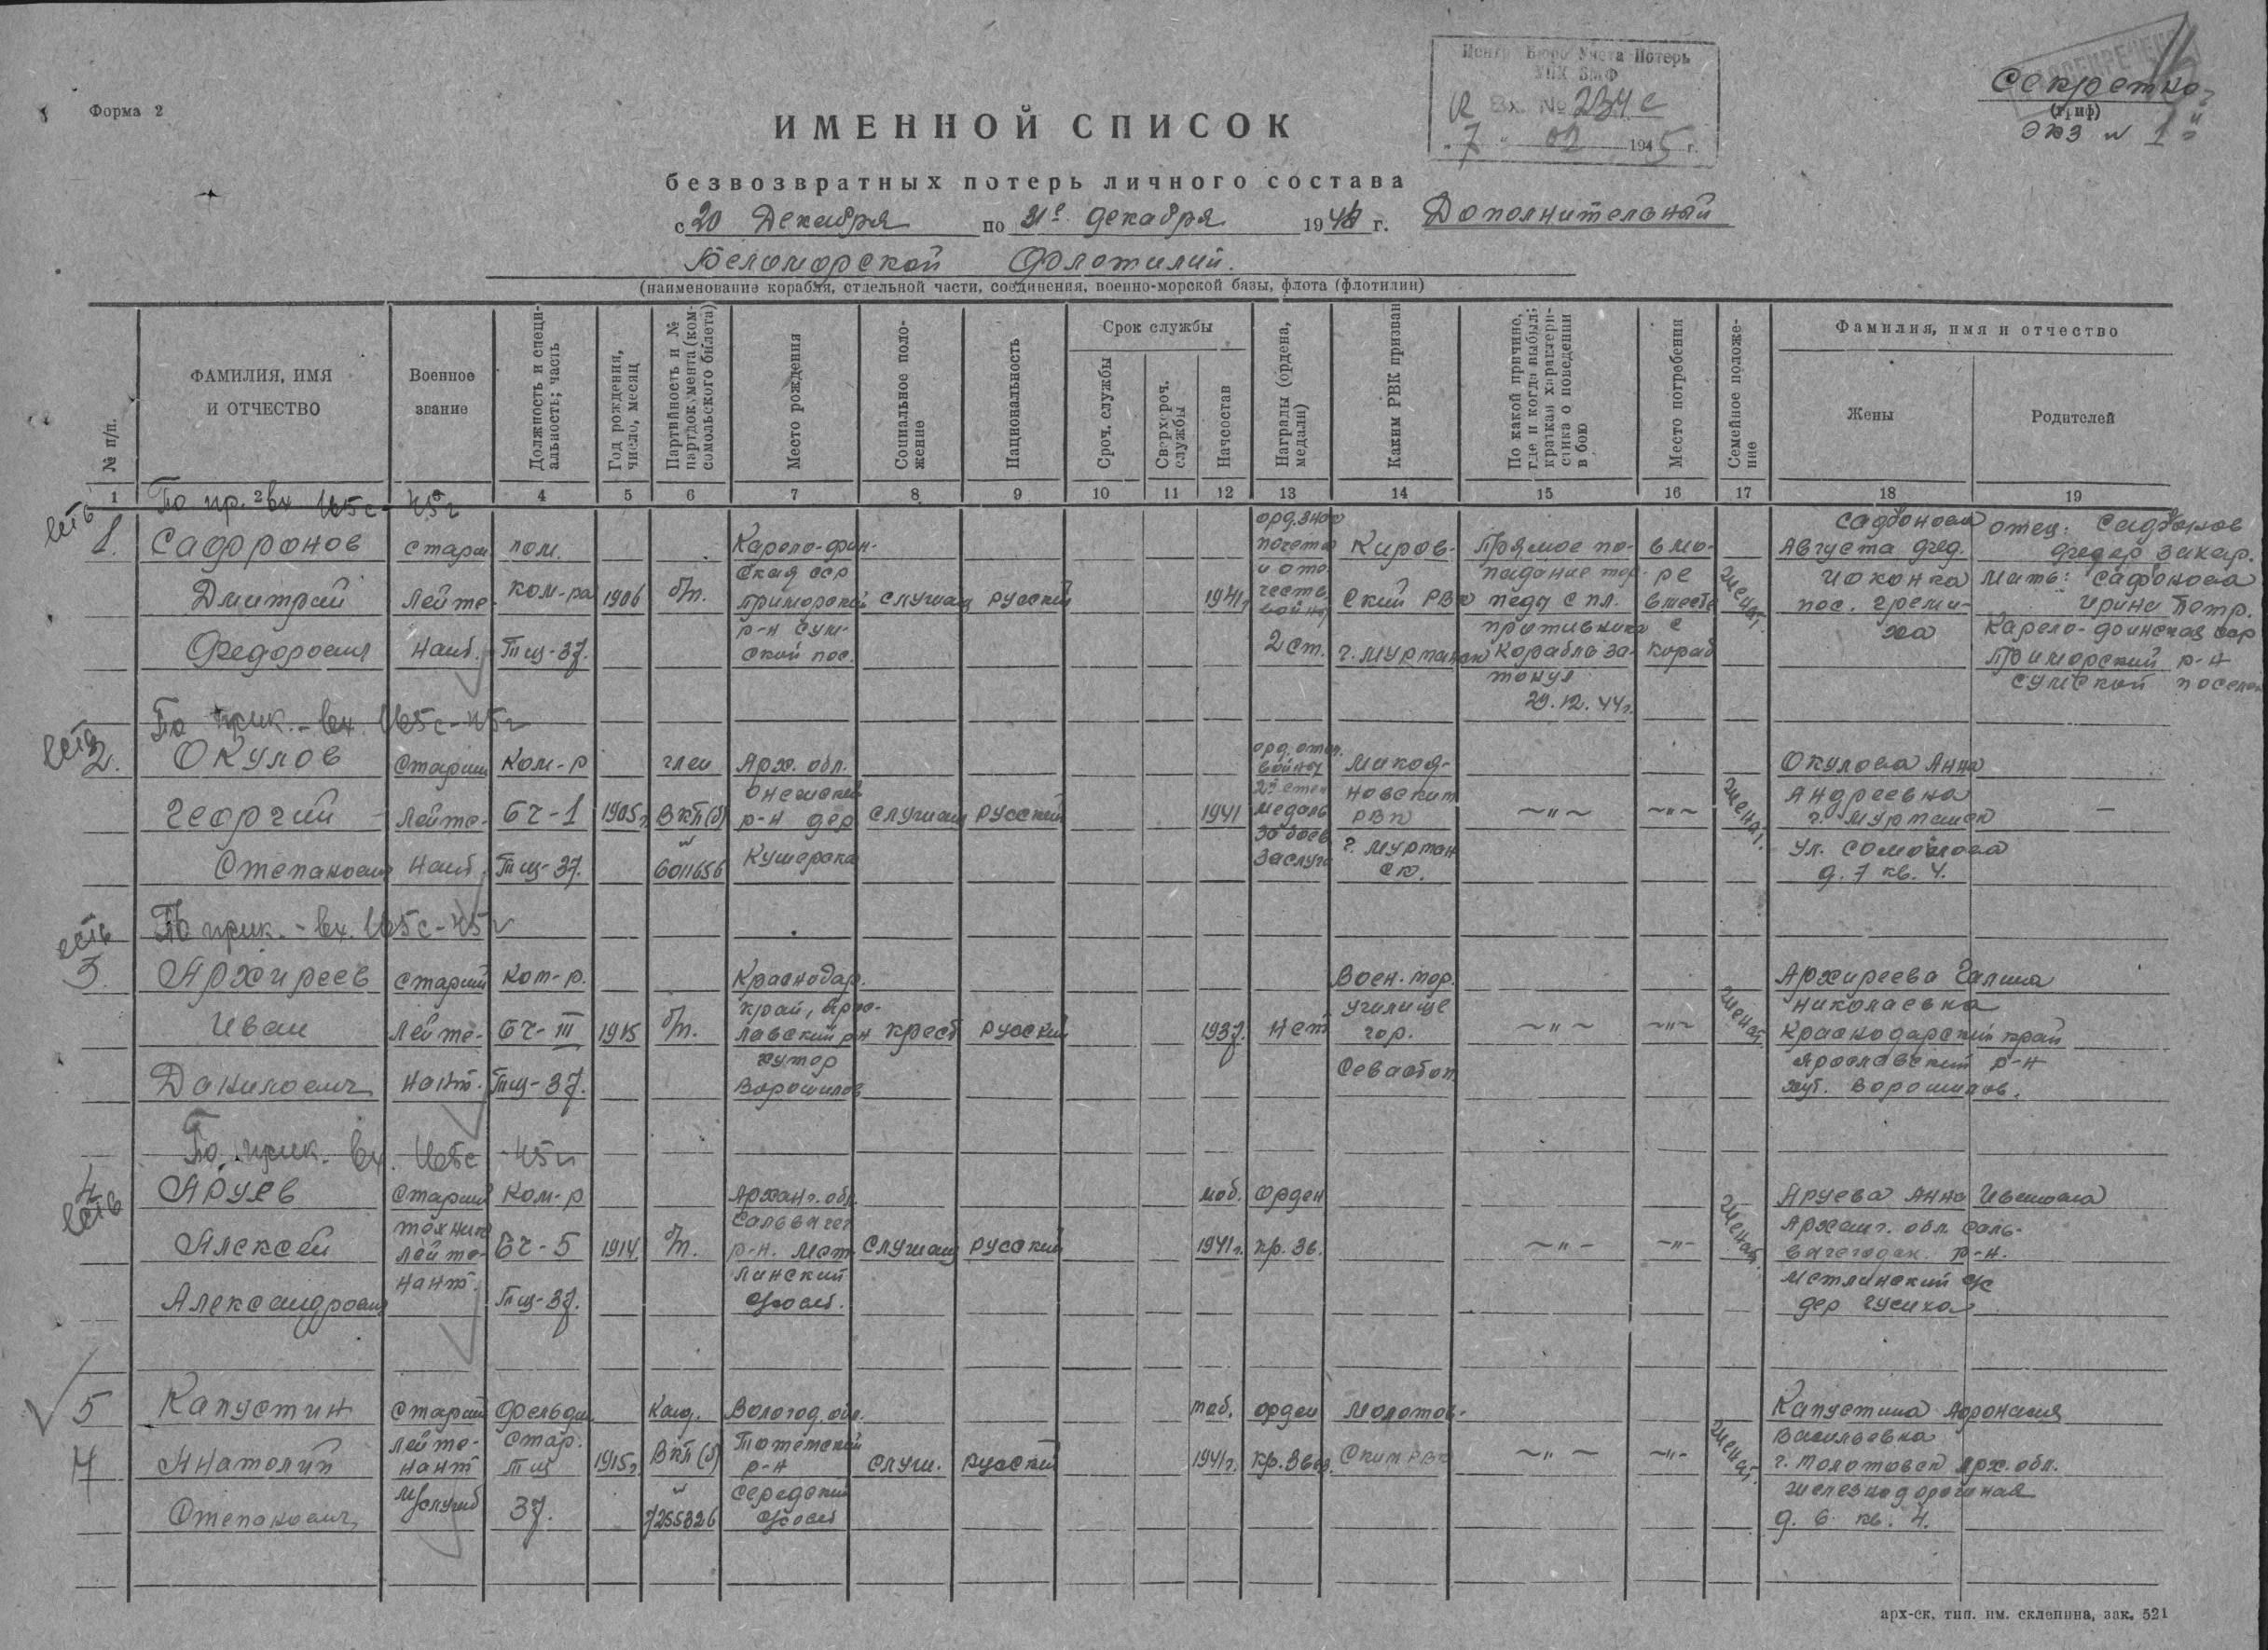 Форма 2
Центр Бюро Учета Потерь
УПК ВМФ
Вх. № 234с
"7" 02 1945 г.
Секретно
(гриф)
экз № 1й
ИМЕННОЙ СПИСОК
безвозвратных потерь личного состава
с 20 Декабря по 31е декабря 194 г. Дополнительный
Беломорской Флотилии.
(наименование корабля, отдельной части, соединения, военно-морской базы, флота (флотилии)
№ п/п.
ФАМИЛИЯ, ИМЯ И ОТЧЕСТВО
Военное звание
Должность и специальность; часть
Год рождения, число, месяц
Партийность и № партдокумента (комсомольского билета)
Место рождения
Социальное положение
Национальность
Срок службы
Сроч. службы
Сверхсроч. службы
Начсостав
Награды (ордена, медали)
Каким РВК призван
По какой причине, где и когда выбыл; краткая характеристика о поведении в бою
Место погребения
Семейное положение
Фамилия, имя и отчество
Жены
Родителей
1 2 3 4 5 6 7 8 9 10 11 12 13 14 15 16 17 18 19
есть
По пр. вх 165с-45г
1. Сафронов Дмитрий Федорович
Старш Лейте-нант.
пом. ком-ра Тщ-37.
1906
б/п.
Карело-фин-ская сср приморский р-н Сум-ской пос.
служащ
русский
1941г
орд. знак почета и оте честв войны 2 ст.
Киров-ский РВК г. Мурманск
Прямое по-падание тор-педы с пл. противника Корабль за-тонул 29.12.44г.
в мо-ре вместе с кораб
женат.
Сафонова Августа Фед. Иоконга пос. Греми-ха
отец: Сафонов Федор Захар. Мать: Сафонова Ирина Петр. Карело-финская сср Приморский р-н Сумской поселок
есть
По прик.-вх. 165с-45г
2. Окулов Георгий Степанович
Старши Лейте-нант.
Ком-р БЧ-1 Тщ-37.
1905г
член ВКП(б) № 6011656
Арх. обл. Онежский р-н дер Кушерека
служащ
русский
1941
орд. отеч. войны 2й степ медаль за боев заслуги
Микоя-новским РВК г. Мурман ск.
-"-
-"-
женат.
Окулова Анна Андреевна г. Мурманск ул. Самойлова д. 7 кв. 4.
-
есть
По прик.-вх. 165с-45г
3. Архиреев Иван Данилович
Старший Лейте-нант.
Ком-р. БЧ-III Тщ-37.
1915
б/п.
Краснодар. край, Яро-лавский р-н хутор Ворошилов
крест
русский
1937.
нет
Воен. мор. училище гор. Севастоп
-"-
-"-
женат.
Архиреева Галина Николаевна Краснодарский край Ярославский р-н хут. Ворошилов.
По прик. вх. 165с-45г
есть
4 Яруев Алексей Александрович
Старший техник лейте-нант.
Ком-р БЧ-5 Тщ-37.
1914.
б/п.
Арханг. обл. Сальвычег р-н. Мет линский с/совет.
служащ
русский
моб. 1941г.
орден кр. Зв.
-"-
-"-
женат.
Яруева Анна Ивановна Арханг. обл. Соль-вычегодск. р-н. Метлинский с/с дер Гусиха
5 Капустин Анатолий Степанович
Старший лейте-нант м/служб
Фельдш. Стар. Тщ 37.
1915г
Канд. ВКП(б) № 7255326
Вологод. обл. Тотемский р-н Середский с/совет
служ.
русский
моб. 1941г.
орден кр. Звез.
Молотов-ским РВК
-"-
-"-
женат.
Капустина Афонасия Васильевна г. Молотовск Арх. обл. Железнодорожная д. 6 кв. 4.
арх-ск. тип. им. склепина, зак. 521